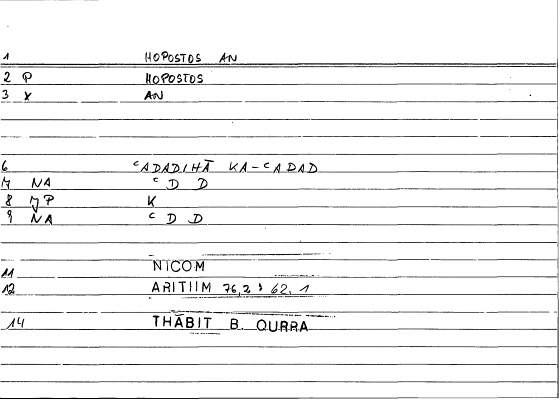 1 HOPOSTOS AN
2 P HOPOSTOS
3 X AN
6 ᶜADADIHĀ KA-ᶜADAD
7 NA ᶜ D D
8 JP K
9 NA ᶜ D D
11 NICOM
12 ARITIIM 76,2 : 62.1
14 THĀBIT B. QURRA